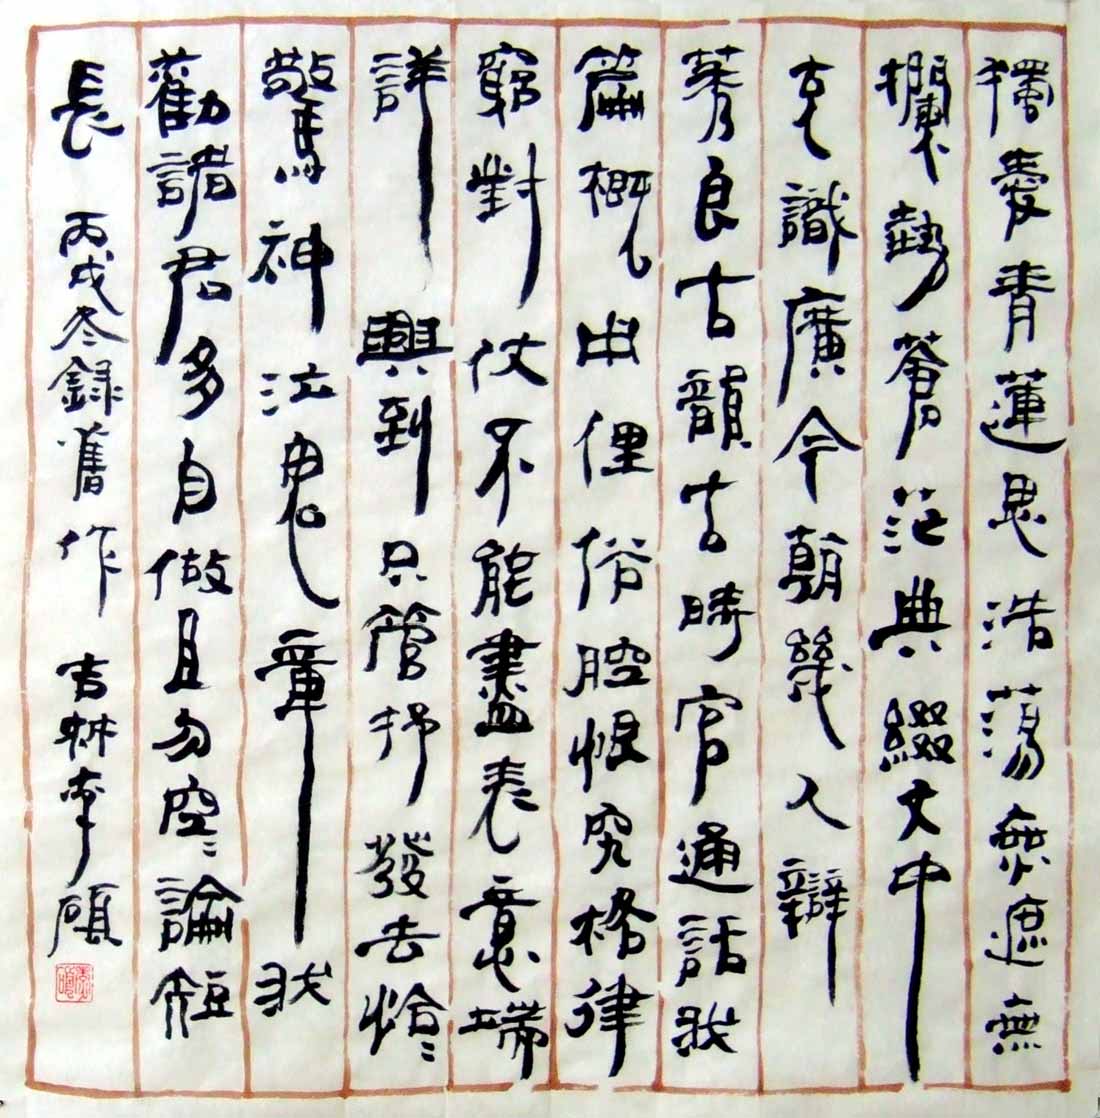 獨愛青蓮思浩蕩無遮無
攔勢蒼茫典綴文中
玄識廣今朝幾人辯
莠良古韻古時官通話我
篇概由俚俗腔恨究格律
窮對仗不能盡表意端
詳興到只管抒發去恰〻
驚神泣鬼章我
勸諸君多自做且勿空〻論短
長 丙戌冬錄舊作 吉林李碩